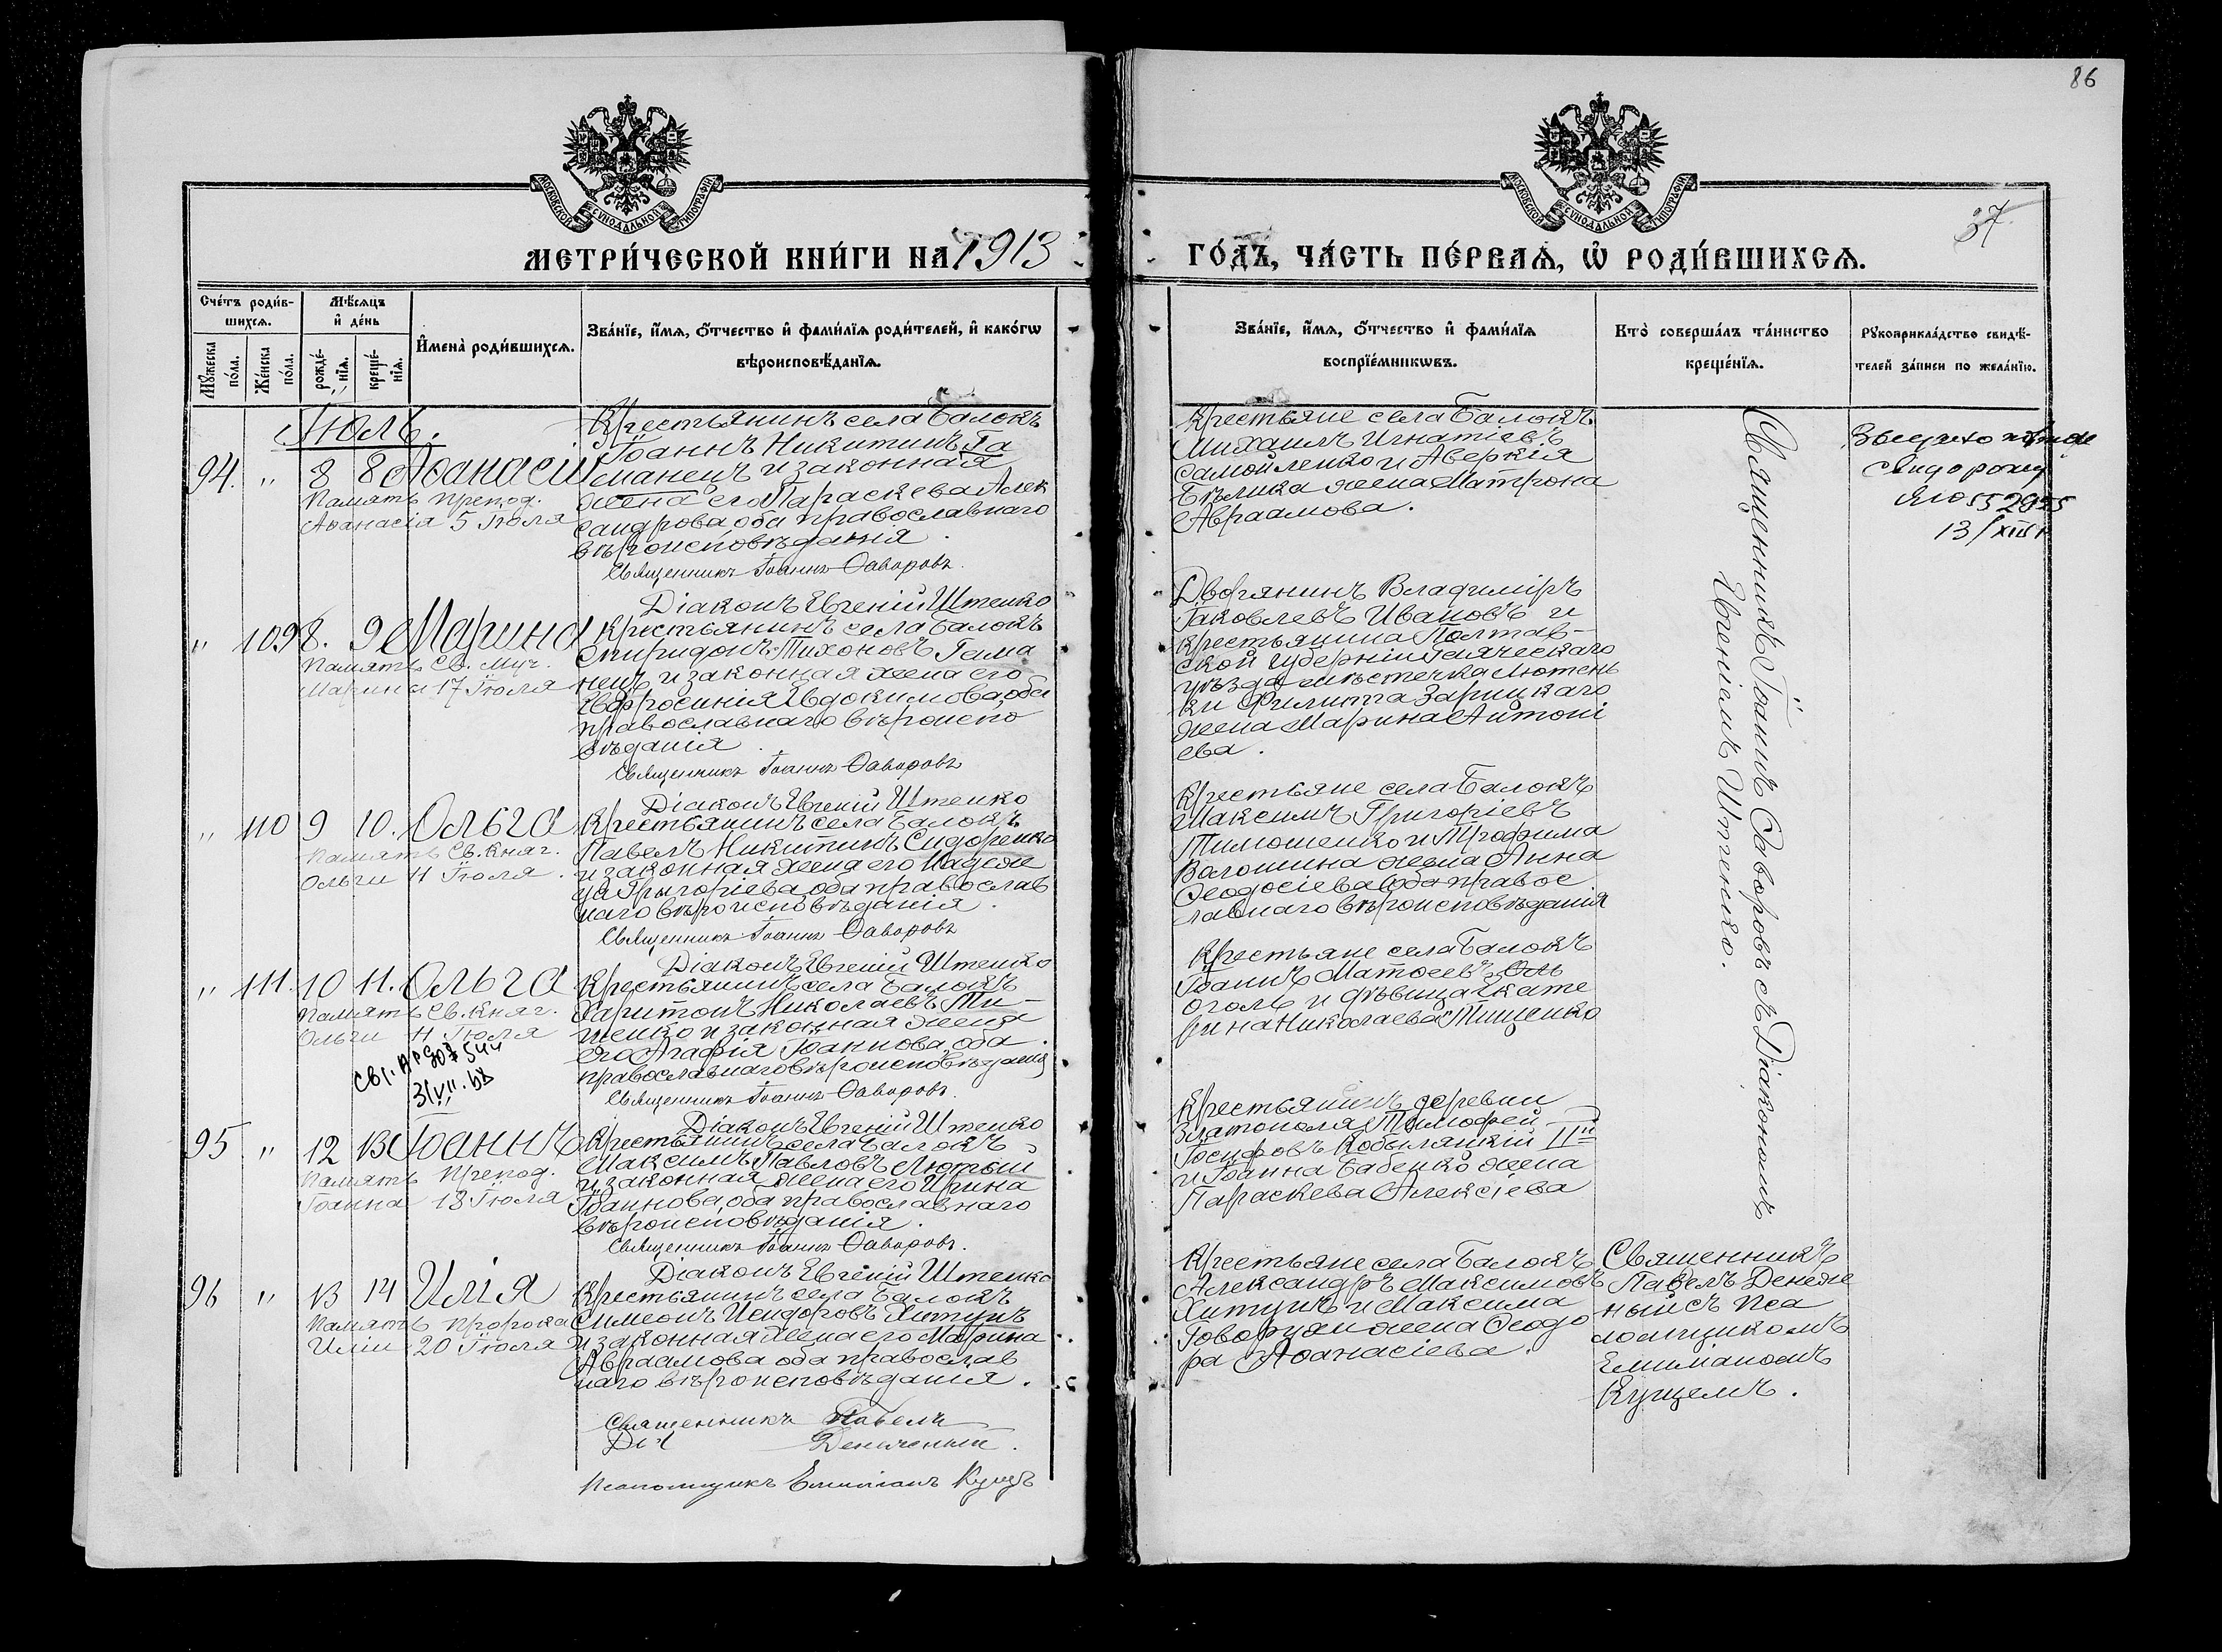 86
37
МОСКОВСКОЙ СѴНОДАЛЬНОЙ ТИПОГРАФІИ
МОСКОВСКОЙ СѴНОДАЛЬНОЙ ТИПОГРАФІИ
МЕТРИ́ЧЕСКОЙ КНИ́ГИ НА 1913
ГО́ДЪ, ЧА́СТЬ ПЕ́РВАѦ, Ѡ РОДИ́ВШИХСѦ.
Сче́тъ роди́в-
шихсѧ.
Мꙋ́жеска
по́ла.
Же́нска
по́ла.
Мѣ́сѧцъ
и҆ де́нь
рожде́-
нїѧ.
креще́-
нїѧ.
И҆мена̀ роди́вшихсѧ.
Зва́нїе, и҆́мѧ, ѻ҆́тчество и҆ фами́лїѧ роди́телей, и҆ како́гѡ
вѣроисповѣ́данїѧ.
Зва́нїе, и҆́мѧ, ѻ҆́тчество и҆ фами́лїѧ
воспрїе́мникѡвъ.
Кто̀ соверша́лъ та́инство
креще́нїѧ.
Рꙋкоприкла́дство свидѣ́-
телей за́писи по жела́нїю.
Іюль.
94. " 8 8 Аѳанасій
Память препод.
Аѳанасія 5 Іюля
Крестьянинъ села Балокъ
Іоаннъ Никитинъ Га
манецъ и законная
жена его Параскева Алек
сандрова, оба православнаго
вѣроисповѣданія.
Священникъ Іоаннъ Ѳаворовъ.
Діаконъ Евгеній Штепко
Крестьяне села Балокъ
Михаилъ Игнатіевъ
Самойленко и Аверкія
Бѣлика жена Матрона
Авраамова.
Священникъ Іоаннъ Ѳаворовъ съ Діакономъ
Евгеніемъ Штепко.
13/XII
" 109 8. 9 Марина
Память Св. муч.
Марины 17 Іюля
Крестьянинъ села Балокъ
Спиридонъ Тихоновъ Гама
нецъ и законная жена его
Евфросинія Евдокимова, оба
православнаго вѣроиспо
вѣданія.
Священникъ Іоаннъ Ѳаворовъ
Діаконъ Евгеній Штепко
Дворянинъ Владиміръ
Іаковлевъ Ивановъ и
крестьянина Полтав-
ской губерніи Гадячскаго
уѣзда мѣстечка Лютень
ки Филиппа Зарицкаго
жена Марина Антоні
ева.
" 110 9 10. Ольга
Память Св. Княг.
Ольги 11 Іюля.
Крестьянинъ села Балокъ
Павелъ Никитинъ Сидоренко
и законная жена его Надеж
да Григоріева, оба православ
наго вѣроисповѣданія.
Священникъ Іоаннъ Ѳаворовъ
Діаконъ Евгеній Штепко
Крестьяне села Балокъ
Максимъ Григоріевъ
Тимошенко и Трофима
Волошина жена Анна
Ѳеодосіева оба правос
лавнаго вѣроисповѣданія
" 111. 10 11. Ольга
Память Св. Княг.
Ольги 11 Іюля
Крестьянинъ села Балокъ
Харитонъ Николаевъ Ти-
щенко и законная жена
его Агафія Іоаннова, оба
православнаго вѣроисповѣданія
Священникъ Іоаннъ Ѳаворовъ.
Діаконъ Евгеній Штепко
Крестьяне села Балокъ
Іоаннъ Матѳеевъ
и дѣвица Екате
рина Николаева Тищенко
95 " 12 13 Іоаннъ
Память препод.
Іоанна 13 Іюля
Крестьянинъ села Балокъ
Максимъ Павловъ Лютый
и законная жена его Ирина
Іоаннова, оба православнаго
вѣроисповѣданія.
Священникъ Іоаннъ Ѳаворовъ.
Діаконъ Евгеній Штепко
Крестьянинъ деревни
Златополя Тимофей
Іосифовъ Кобыляцкій II й
и Іоанна Бабенко жена
Параскева Алексіева
96 " 13 14 Илія
Память пророка
Иліи 20 Іюля
Крестьянинъ села Балокъ
Симеонъ Исидоровъ Хитунъ
и законная жена его Марина
Авраамова оба православ
наго вѣроисповѣданія.
Священникъ Павелъ
Денежный.
Псаломщикъ Емиліанъ Куцъ
Крестьяне села Балокъ
Александръ Максимовъ
Хитунъ и Максима
Говорухи жена Ѳеодо
ра Аѳанасіева.
Священникъ
Павелъ Денеж
ный съ Пса
ломщикомъ
Емиліаномъ
Куцемъ.